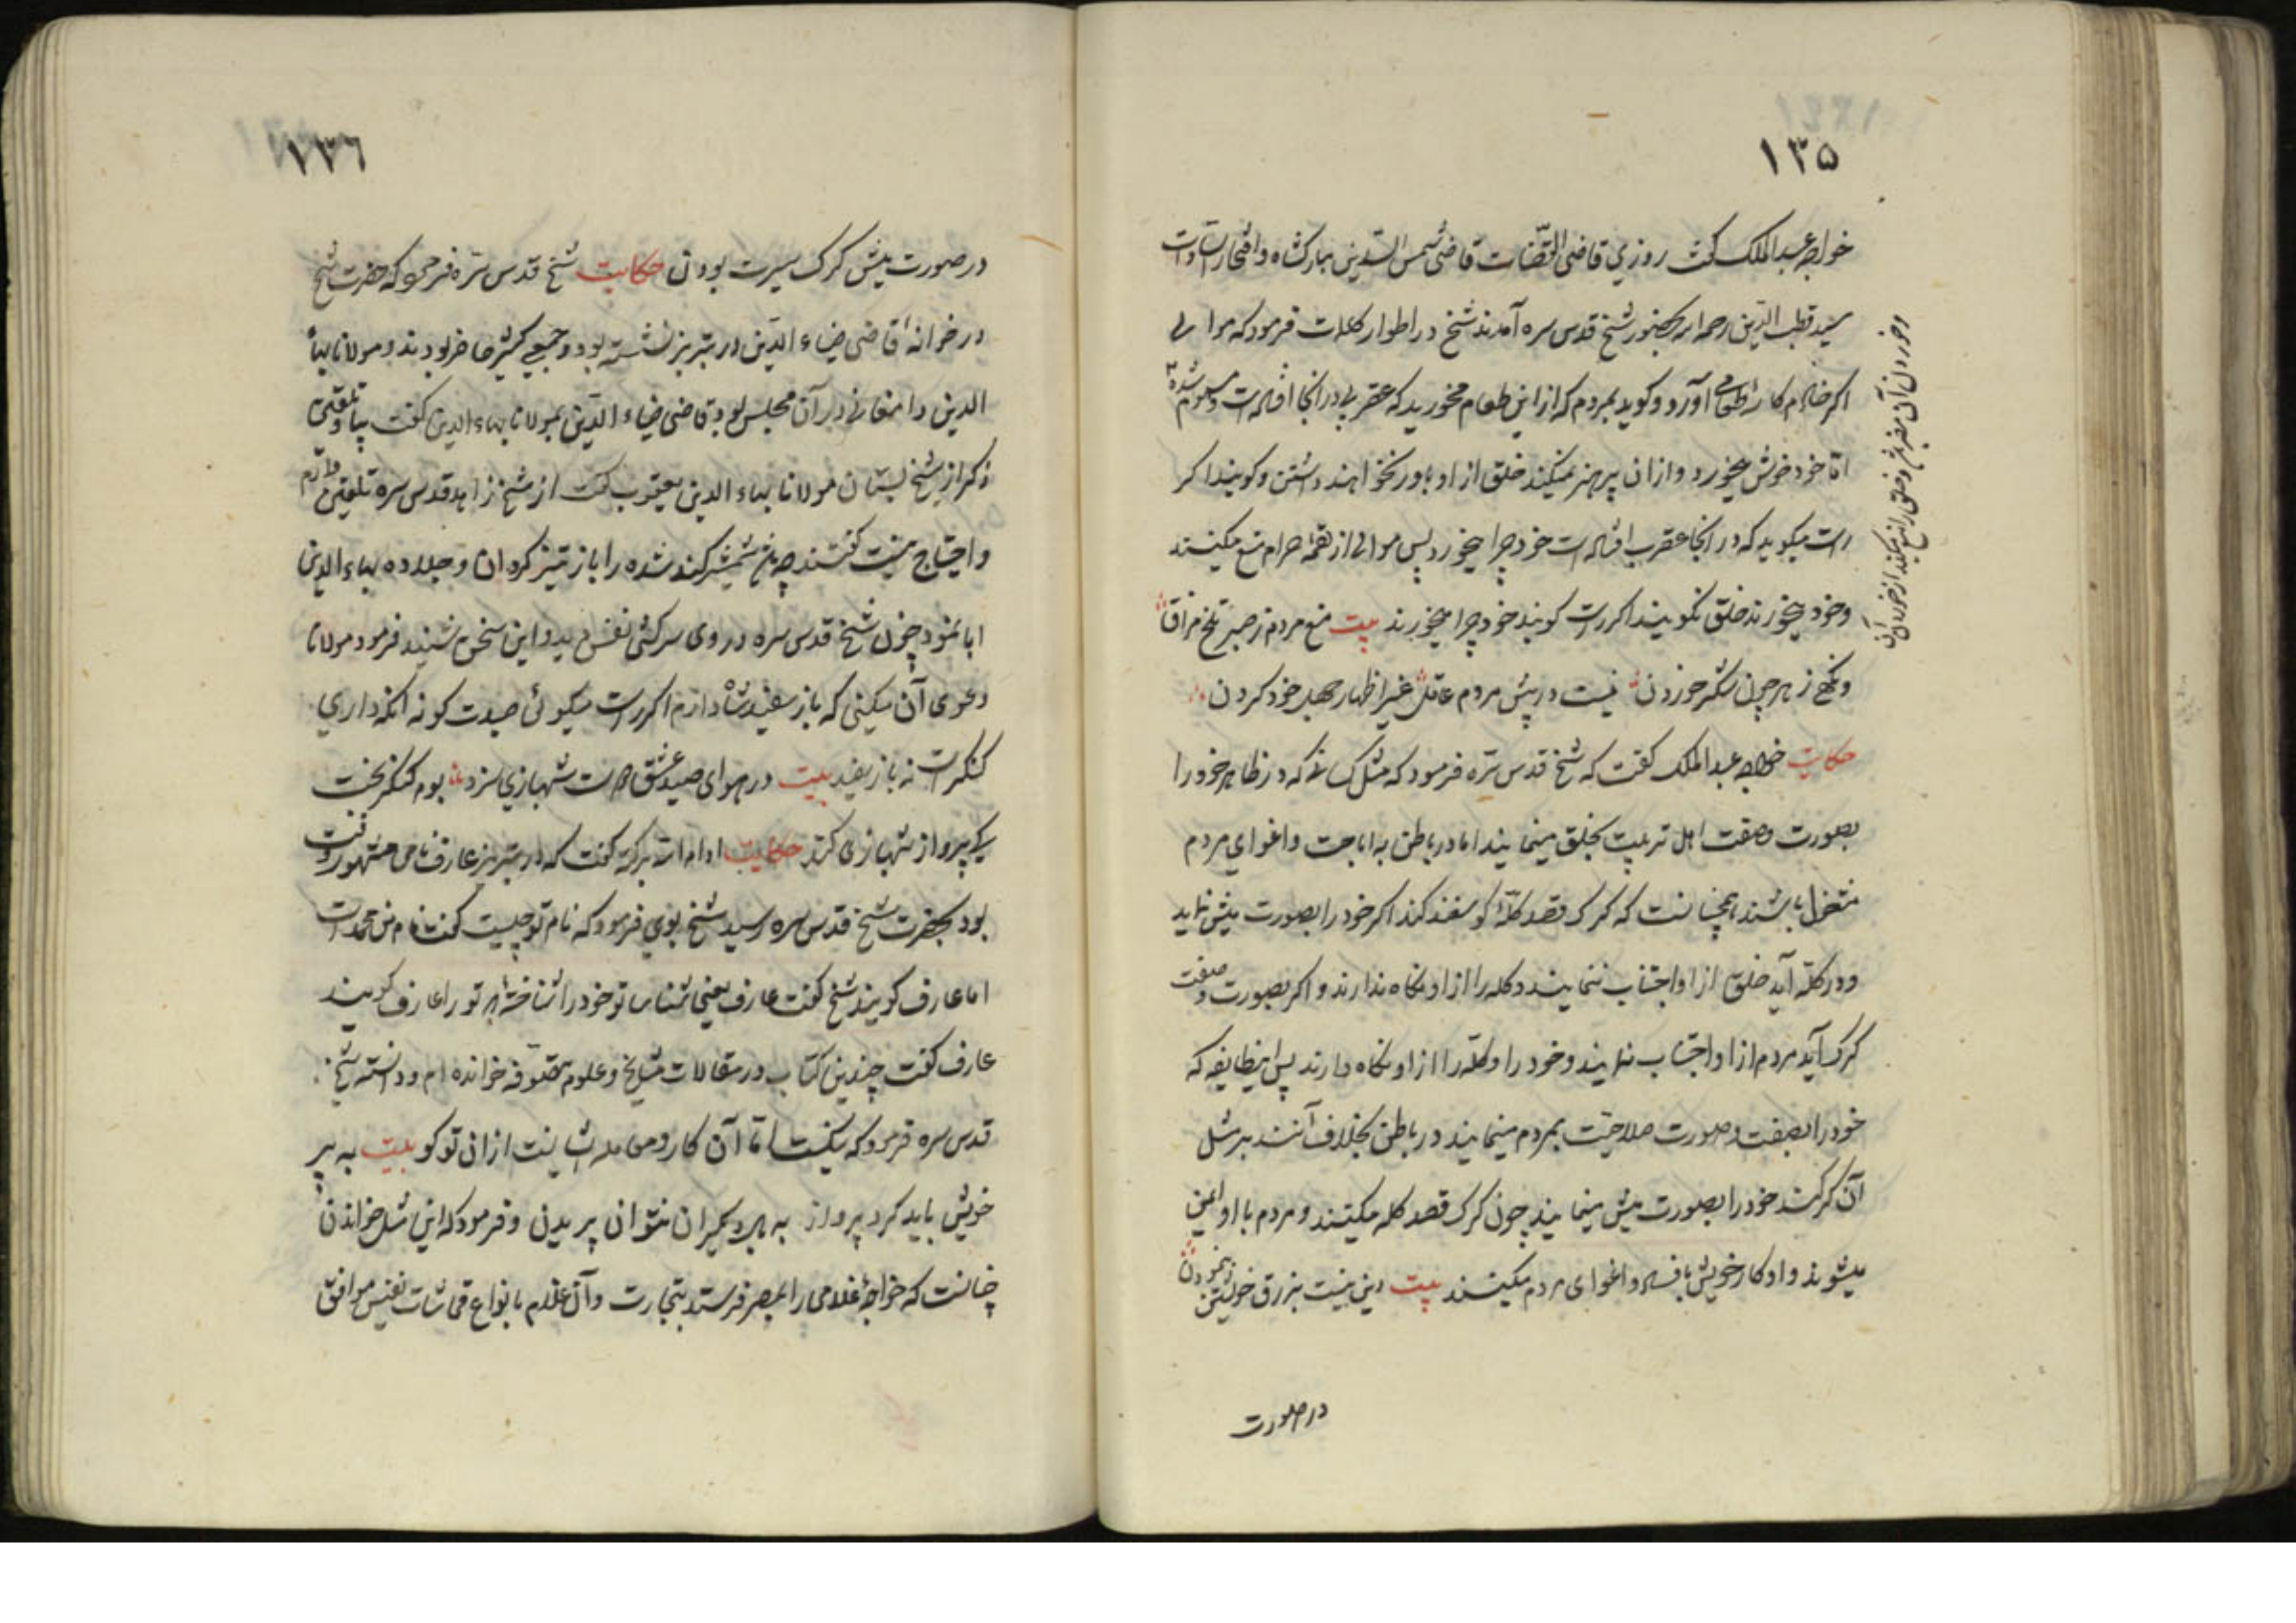 ١٣٥
خواجه عبدالملک کفت روزي قاضی القضات قاضی شمس الدین مبارکشاه و افتخار السادات
سید قطب الدین رحمه الله بحضور شیخ قدس سره آمدند شیخ در اطوار کلمات فرمود که موالی
اکر خادم کاسه طعامی آورد و کوید بمردم که از این طعام مخورید که عقربی در انجا افتاده است و مسموم شده
اما خود خوش میخورد و ازان پرهیز نمیکند خلق از او باور نخواهند داشتن و کویند اکر
راست میکوید که در انجا عقرب افتاده است خود چرا میخورد پس موالی از لقمه حرام منع میکنند
وخود میخورند خلق نکویند اکر راست کویند خود چرا میخورند بیت منع مردم ز صبر تلخ مذاق
ونکهی زهر چون شکر خوردن نیست در پیش مردم عاقل غیر اظهار جهل خود کردن
حکایت خواجه عبدالملک کفت که شیخ قدس سره فرمود که مثل کسانی که در ظاهر خود را
بصورت وصفت اهل تربیت بخلق مینمایند اما در باطن به اباحت واغوای مردم
مشغول باشند همچنانست که کرک قصد کلهٔ کوسفند کند اکر خود را بصورت میش نماید
ودر کله آید خلق از او اجتناب ننمایند و کله را از او نکاه ندارند و اکر بصورت و صفت
کرک آید مردم از او اجتناب نمایند وخود را و کله را از او نکاه دارند پس اینطایفه که
خود را بصفت وصورت صلاحیت بمردم مینمایند در باطن بخلاف آنند بر مثل
آن کرکند خود را بصورت میش مینمایند چون کرک قصد کله میکنند و مردم با او ایمن
میشوند و او کار خویش بافساد و اغوای مردم میکنند بیت دین نیست بزرق خویشتن بنمودن
در صورت
وخوردن آن مضر و خلق را منع میکند از خوردن آن
١٣٦
در صورت میش کرک سیرت بودن حکایت شیخ قدس سره فرمود که حضرت شیخ
در خوانه قاضی ضیاء الدین در تبریز نشسته بود و جمعی کثیر حاضر بودند و مولانا بهاء
الدین دامغانی در آن مجلس بود قاضی ضیاء الدین بمولانا بهاء الدین کفت بیا و تلقین
ذکر از شیخ بستان مولانا بهاء الدین یعقوب کفت از شیخ زاهد قدس سره تلقین دارم
و احتیاج نیست کفتند چه شمشیر کند شده را باز تیز کردن و جلا ده بهاء الدین
ابا نمود چون شیخ قدس سره در وی سرکشی نفس دید و این سخن شنید فرمود مولانا
دعوی آن میکنی که باز سفید شاه دارم اکر راست میکوئی صیدت کو نه انکه داری
کنکر است نه باز سفید بیت در هوای صید عشق است شهبازي سزد بوم کنکر بخت
کی پرواز شهبازی کند حکایت ادام الله برکته کفت که در تبریز عارف نامی مشهور وقت
بود بحضرت شیخ قدس سره رسید شیخ بوي فرمود که نام تو چیست کفت نام من محمد است
اما عارف کویند شیخ کفت عارف یعنی شناسا تو خود را شناختهٔ که تو را عارف کویند
عارف کفت چندین کتاب در مقالات مشایخ و علوم متصوفه خوانده ام و دانسته شیخ
قدس سره فرمود که نیکست اما آن کار ومعامله ایشانست ازان تو کو بیت به پر
خویش باید کرد پرواز به پر دیکران نتوان پریدن و فرمود که این مثل خواندن
چنانست که خواجهٔ غلامی را بمصر فرستد بتجارت و آن غلام بانواع قماشات نفیس موافق